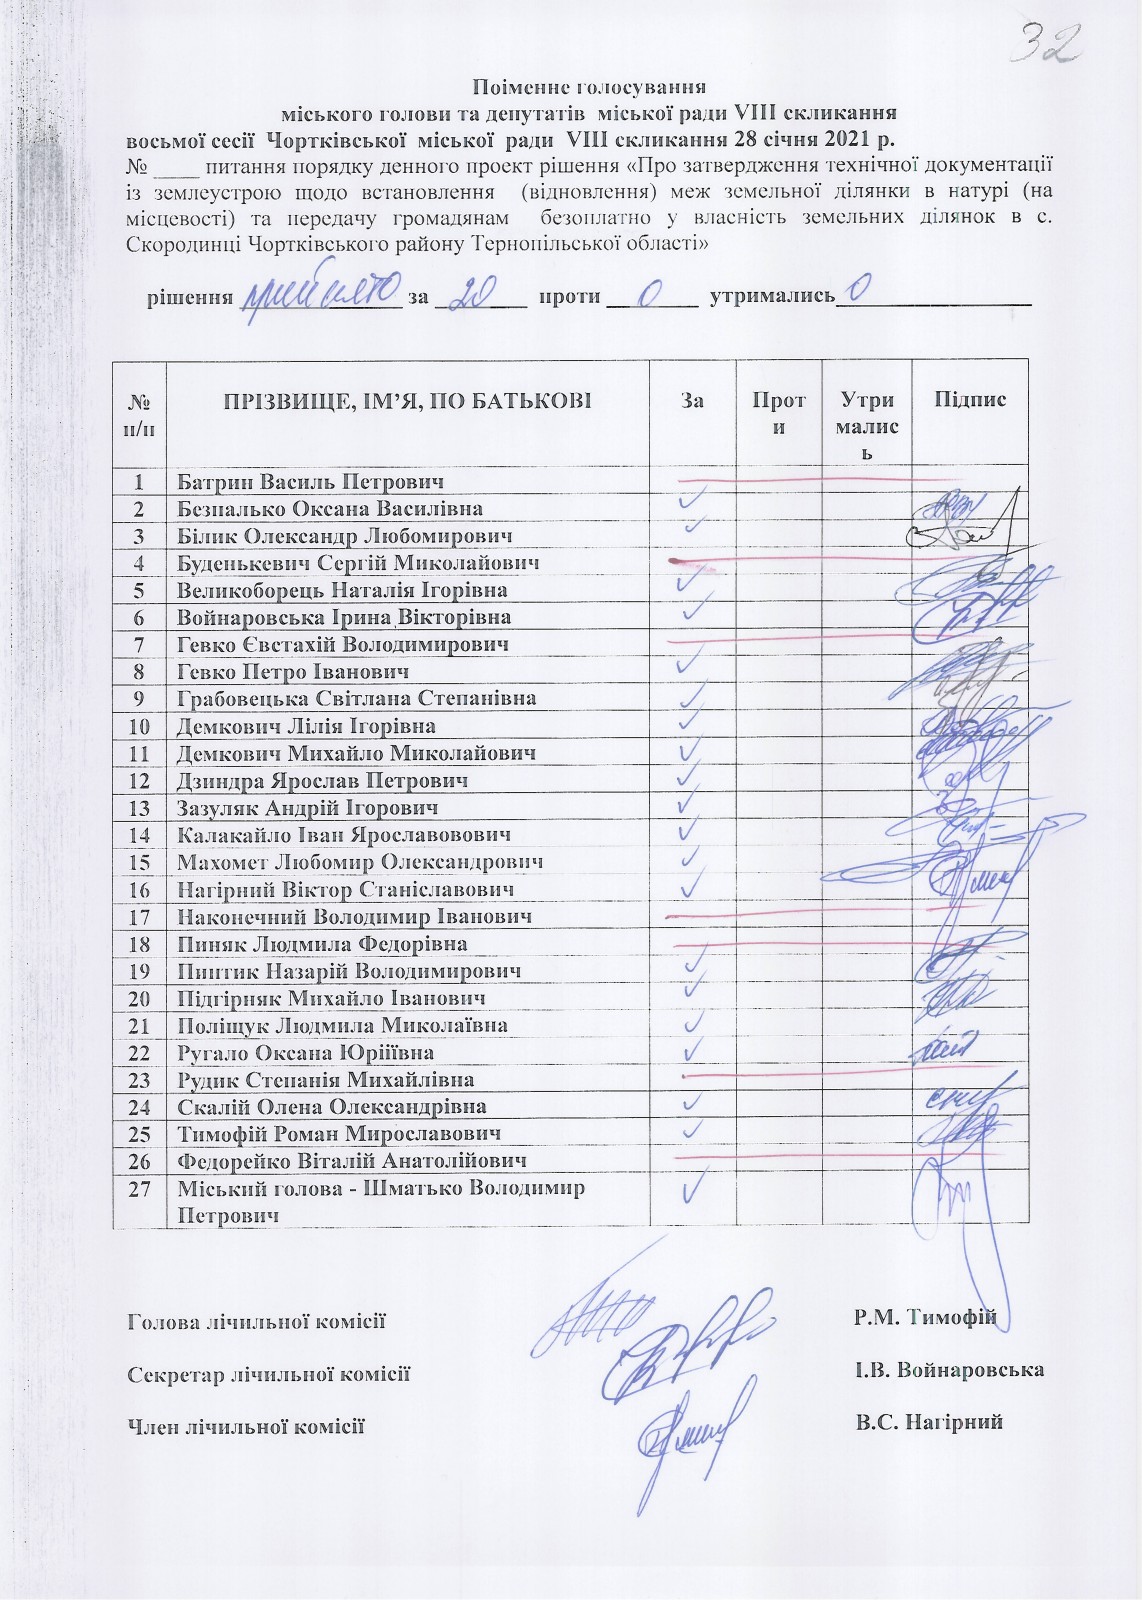 32
Поіменне голосування
міського голови та депутатів міської ради VІІІ скликання
восьмої сесії Чортківської міської ради VІІІ скликання 28 січня 2021 р.
№ ____ питання порядку денного проект рішення «Про затвердження технічної документації
із землеустрою щодо встановлення (відновлення) меж земельної ділянки в натурі (на
місцевості) та передачу громадянам безоплатно у власність земельних ділянок в с.
Скородинці Чортківського району Тернопільської області»
рішення прийнято за 20 проти 0 утримались 0
№ п/п ПРІЗВИЩЕ, ІМ’Я, ПО БАТЬКОВІ За Проти Утрималис ь Підпис
1 Батрин Василь Петрович
2 Безпалько Оксана Василівна ✓
3 Білик Олександр Любомирович ✓
4 Буденькевич Сергій Миколайович
5 Великоборець Наталія Ігорівна ✓
6 Войнаровська Ірина Вікторівна ✓
7 Гевко Євстахій Володимирович
8 Гевко Петро Іванович ✓
9 Грабовецька Світлана Степанівна ✓
10 Демкович Лілія Ігорівна ✓
11 Демкович Михайло Миколайович ✓
12 Дзиндра Ярослав Петрович ✓
13 Зазуляк Андрій Ігорович ✓
14 Калакайло Іван Ярославовович ✓
15 Махомет Любомир Олександрович ✓
16 Нагірний Віктор Станіславович ✓
17 Наконечний Володимир Іванович
18 Пиняк Людмила Федорівна
19 Пиптик Назарій Володимирович ✓
20 Підгірняк Михайло Іванович ✓
21 Поліщук Людмила Миколаївна ✓
22 Ругало Оксана Юріїївна ✓
23 Рудик Степанія Михайлівна
24 Скалій Олена Олександрівна ✓
25 Тимофій Роман Мирославович ✓
26 Федорейко Віталій Анатолійович
27 Міський голова - Шматько Володимир ✓
Петрович
Голова лічильної комісії Р.М. Тимофій
Секретар лічильної комісії І.В. Войнаровська
Член лічильної комісії В.С. Нагірний